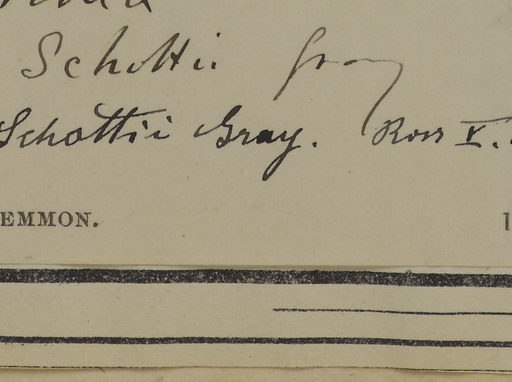 Schottii Gray
Schottii Gray. Ross V.
EMMON.